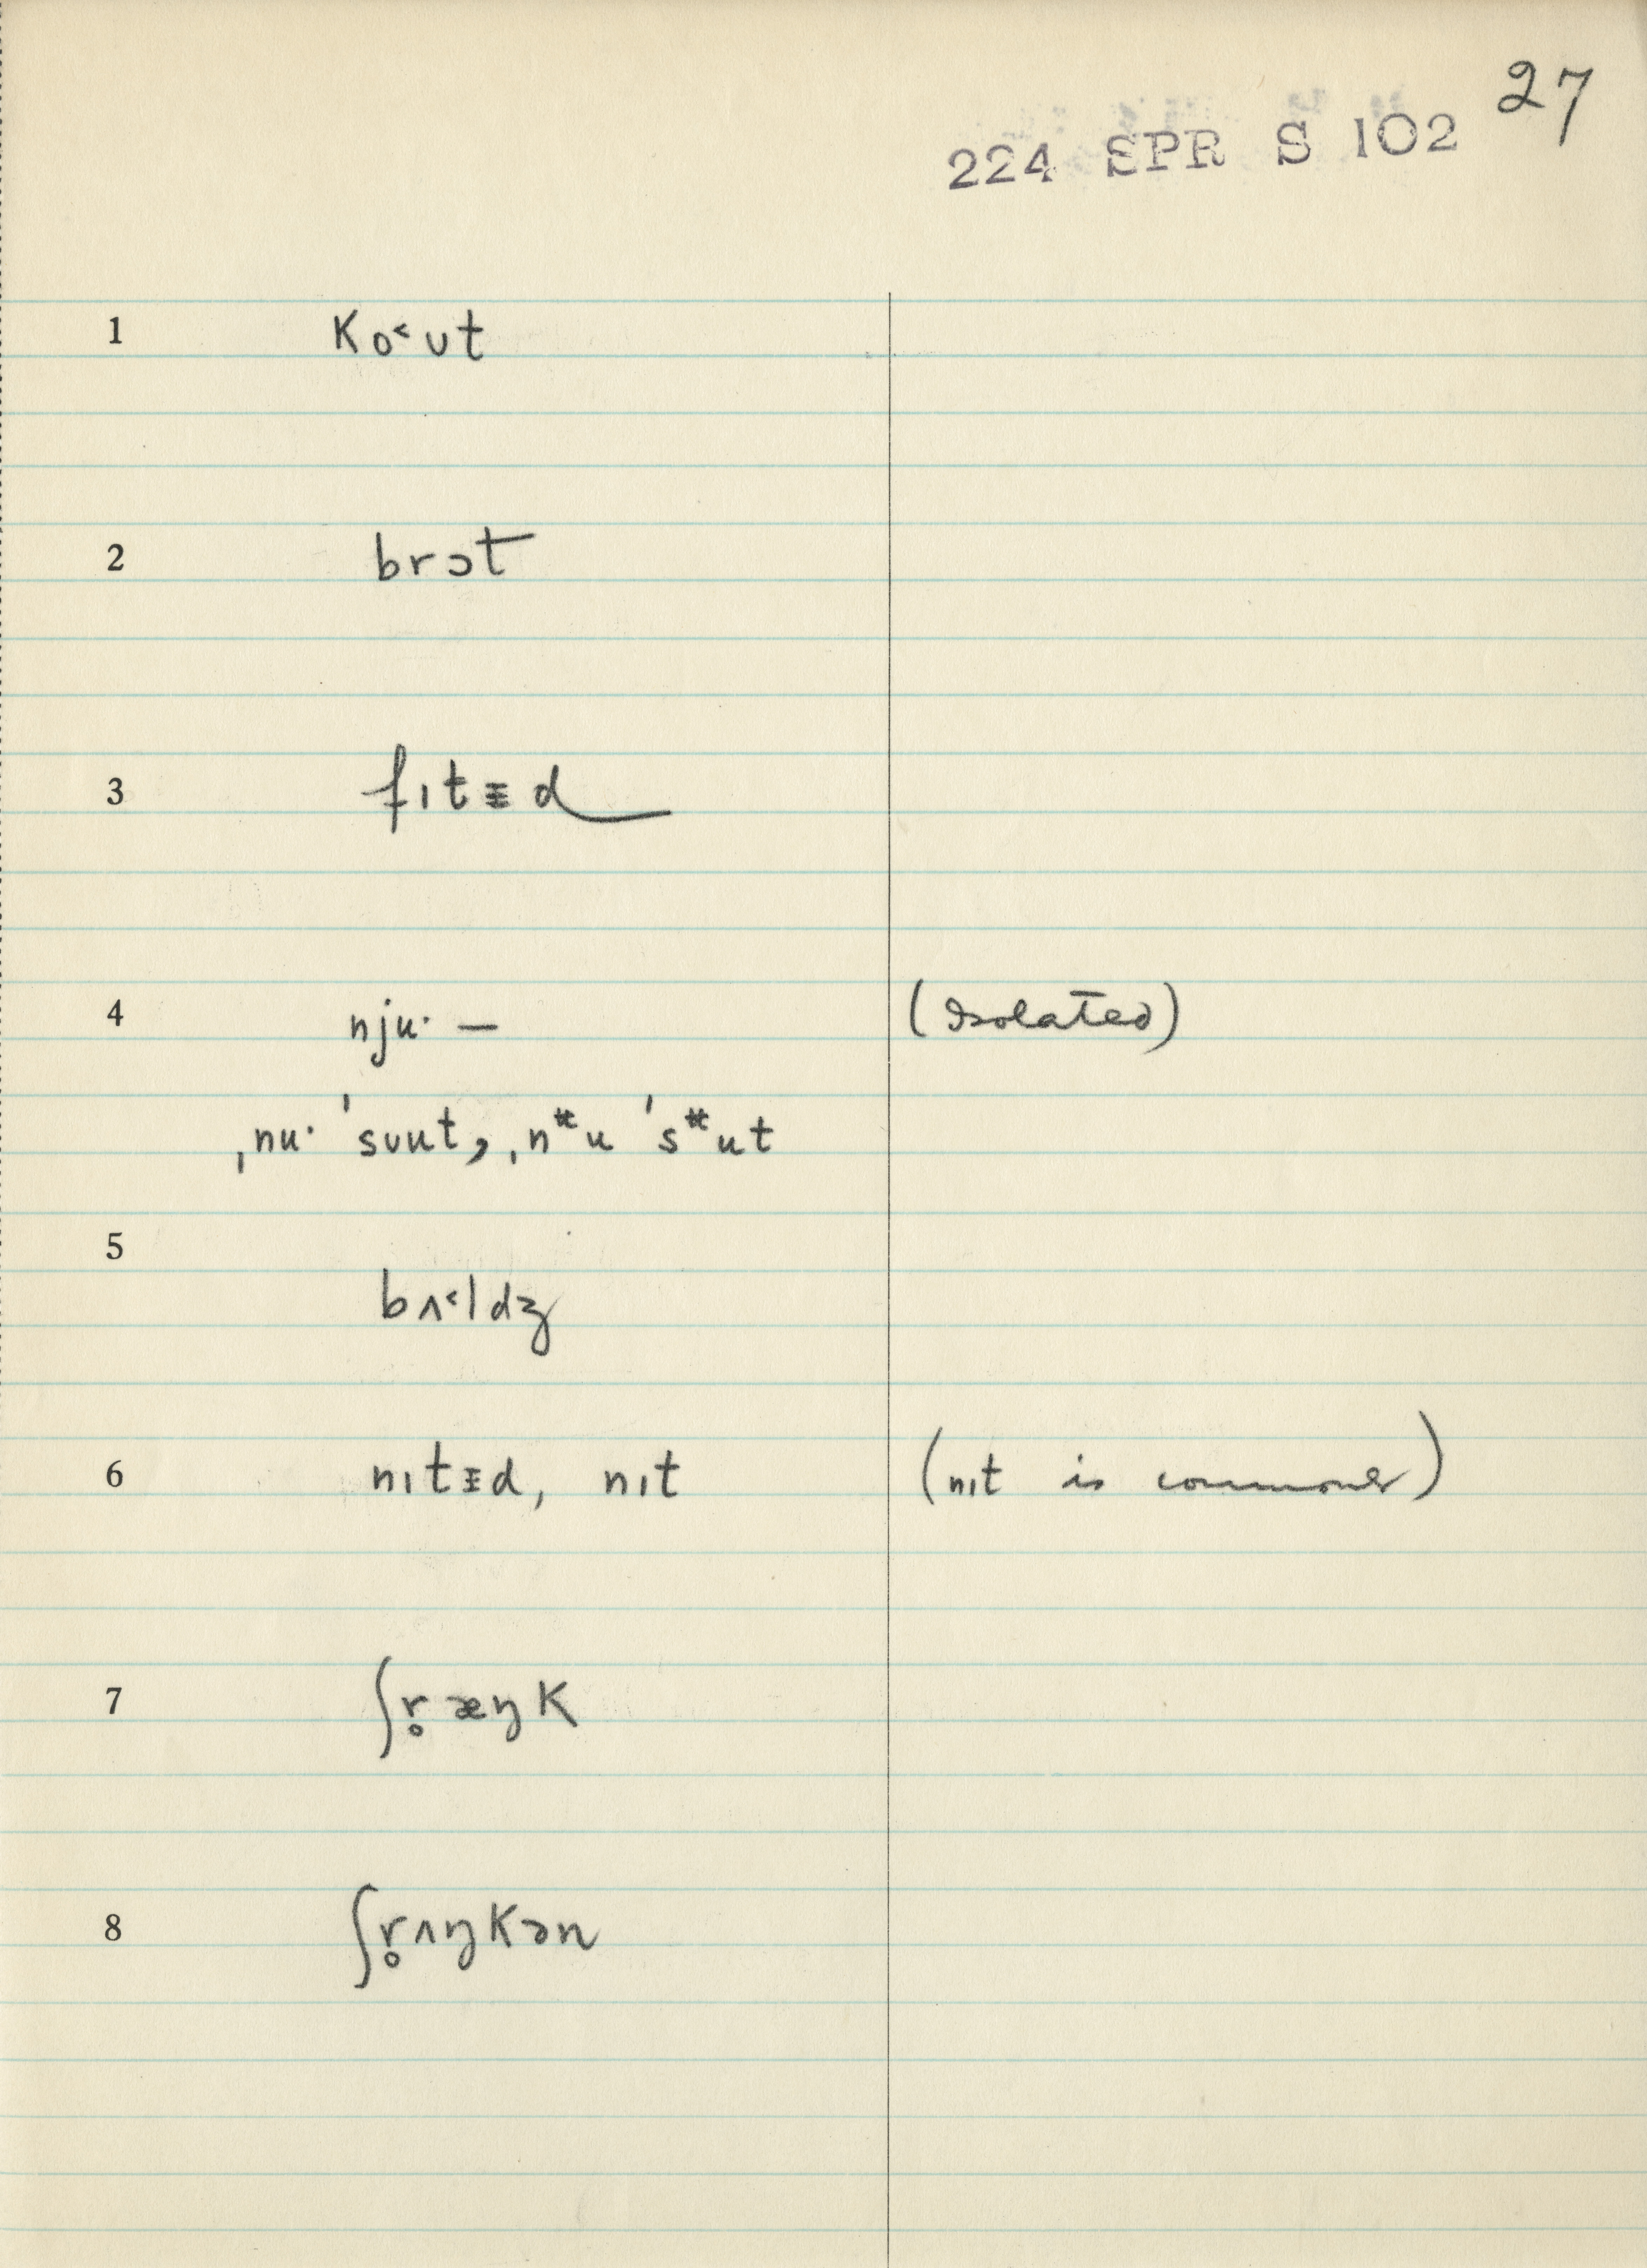 27
224 SPR S 102
1 ko˂ʊt
2 brɔt
3 fɪtᵻd
4 njuˑ — (isolated)
ˌnuˑ ˈsuut, ˌnᵚu ˈsᵚut
5
bʌ˂ldʒ
6 nɪtᵻd, nɪt (nɪt is commoner)
7 ʃr̥æŋk
8 ʃr̥ʌŋkən